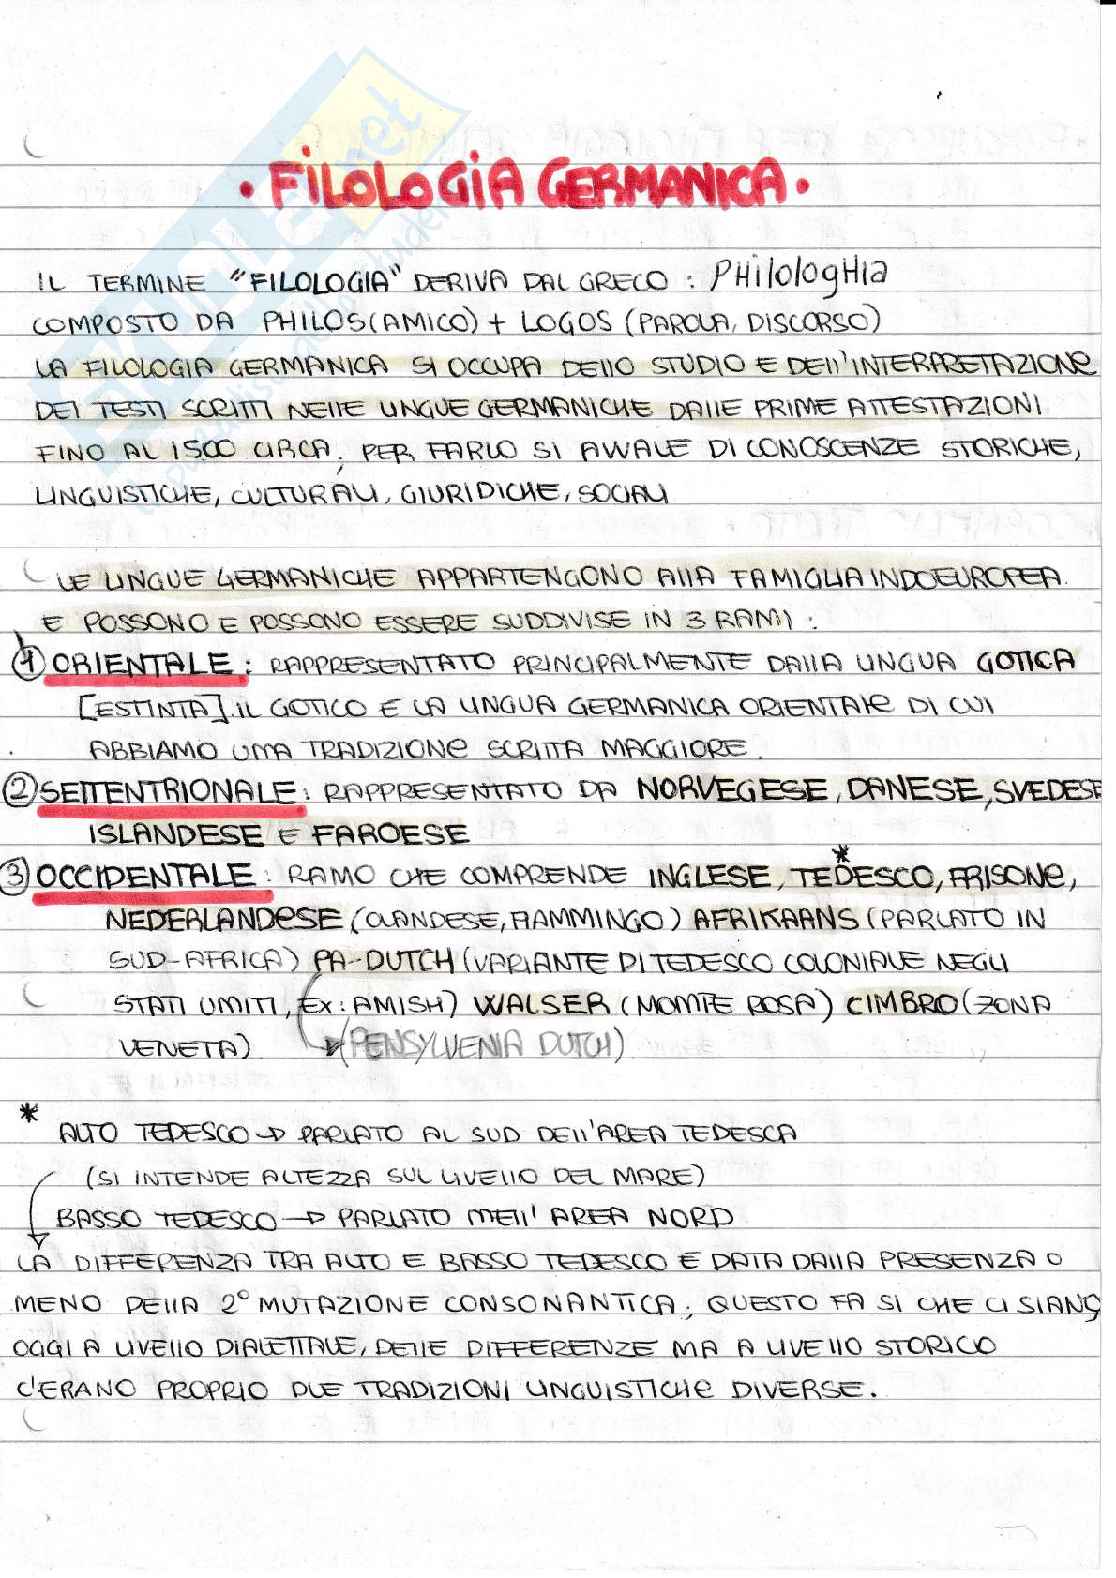 • FILOLOGIA GERMANICA •
IL TERMINE "FILOLOGIA" DERIVA DAL GRECO : PHILOLOGHIA
COMPOSTO DA PHILOS(AMICO) + LOGOS (PAROLA, DISCORSO)
LA FILOLOGIA GERMANICA SI OCCUPA DELLO STUDIO E DELL'INTERPRETAZIONE
DEI TESTI SCRITTI NELLE LINGUE GERMANICHE DALLE PRIME ATTESTAZIONI
FINO AL 1500 CIRCA; PER FARLO SI AVVALE DI CONOSCENZE STORICHE,
LINGUISTICHE, CULTURALI, GIURIDICHE, SOCIALI
LE LINGUE GERMANICHE APPARTENGONO ALLA FAMIGLIA INDOEUROPEA.
E POSSONO E POSSONO ESSERE SUDDIVISE IN 3 RAMI :
1 ORIENTALE : RAPPRESENTATO PRINCIPALMENTE DALLA LINGUA GOTICA
[ESTINTA]. IL GOTICO E LA LINGUA GERMANICA ORIENTALE DI CUI
ABBIAMO UNA TRADIZIONE SCRITTA MAGGIORE.
2 SETTENTRIONALE : RAPPRESENTATO DA NORVEGESE, DANESE, SVEDESE
ISLANDESE E FAROESE
3 OCCIDENTALE : RAMO CHE COMPRENDE INGLESE, TEDESCO*, FRISONE,
NEDERLANDESE (OLANDESE, FIAMMINGO) AFRIKAANS (PARLATO IN
SUD-AFRICA) PA-DUTCH (VARIANTE DI TEDESCO COLONIALE NEGLI
STATI UNITI, EX: AMISH) WALSER (MONTE ROSA) CIMBRO (ZONA
VENETA) → (PENSYLVENIA DUTCH)
* ALTO TEDESCO → PARLATO AL SUD DELL'AREA TEDESCA
(SI INTENDE ALTEZZA SUL LIVELLO DEL MARE)
BASSO TEDESCO → PARLATO NELL' AREA NORD
LA DIFFERENZA TRA ALTO E BASSO TEDESCO E DATA DALLA PRESENZA O
MENO DELLA 2° MUTAZIONE CONSONANTICA; QUESTO FA SI CHE CI SIANO
OGGI A LIVELLO DIALETTALE, DELLE DIFFERENZE MA A LIVELLO STORICO
C'ERANO PROPRIO DUE TRADIZIONI LINGUISTICHE DIVERSE.